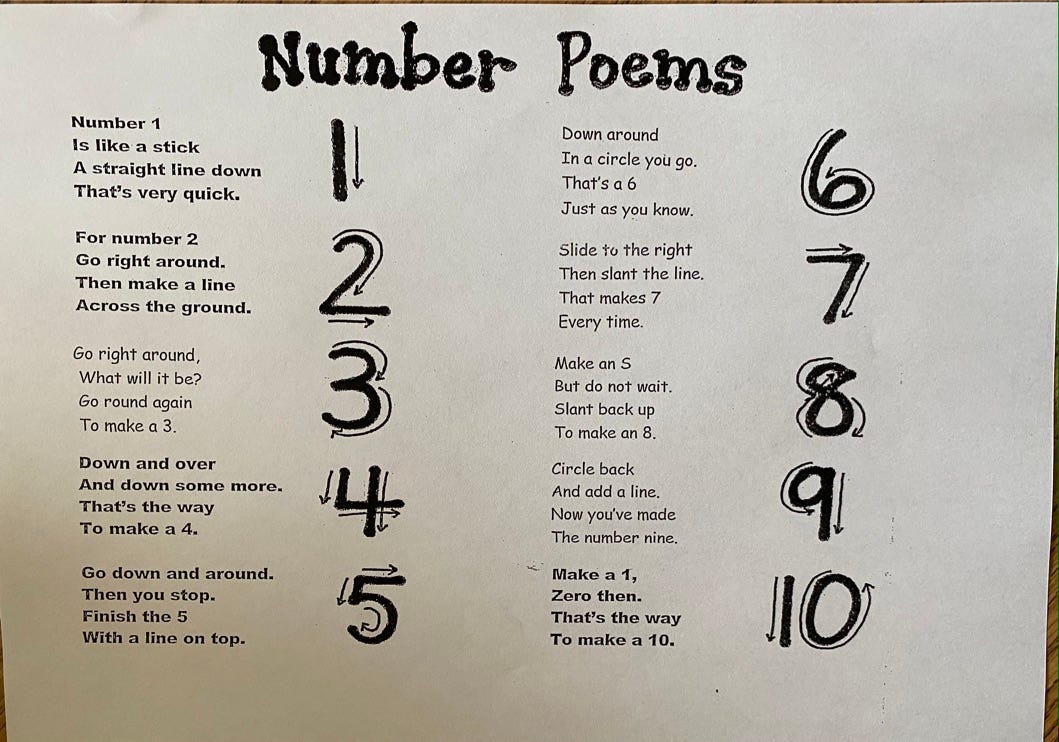 Number Poems
Number 1
Is like a stick
A straight line down
That's very quick.
1
For number 2
Go right around.
Then make a line
Across the ground.
2
Go right around,
What will it be?
Go round again
To make a 3.
3
Down and over
And down some more.
That's the way
To make a 4.
4
Go down and around.
Then you stop.
Finish the 5
With a line on top.
5
Down around
In a circle you go.
That's a 6
Just as you know.
6
Slide to the right
Then slant the line.
That makes 7
Every time.
7
Make an S
But do not wait.
Slant back up
To make an 8.
8
Circle back
And add a line.
Now you've made
The number nine.
9
Make a 1,
Zero then.
That's the way
To make a 10.
10